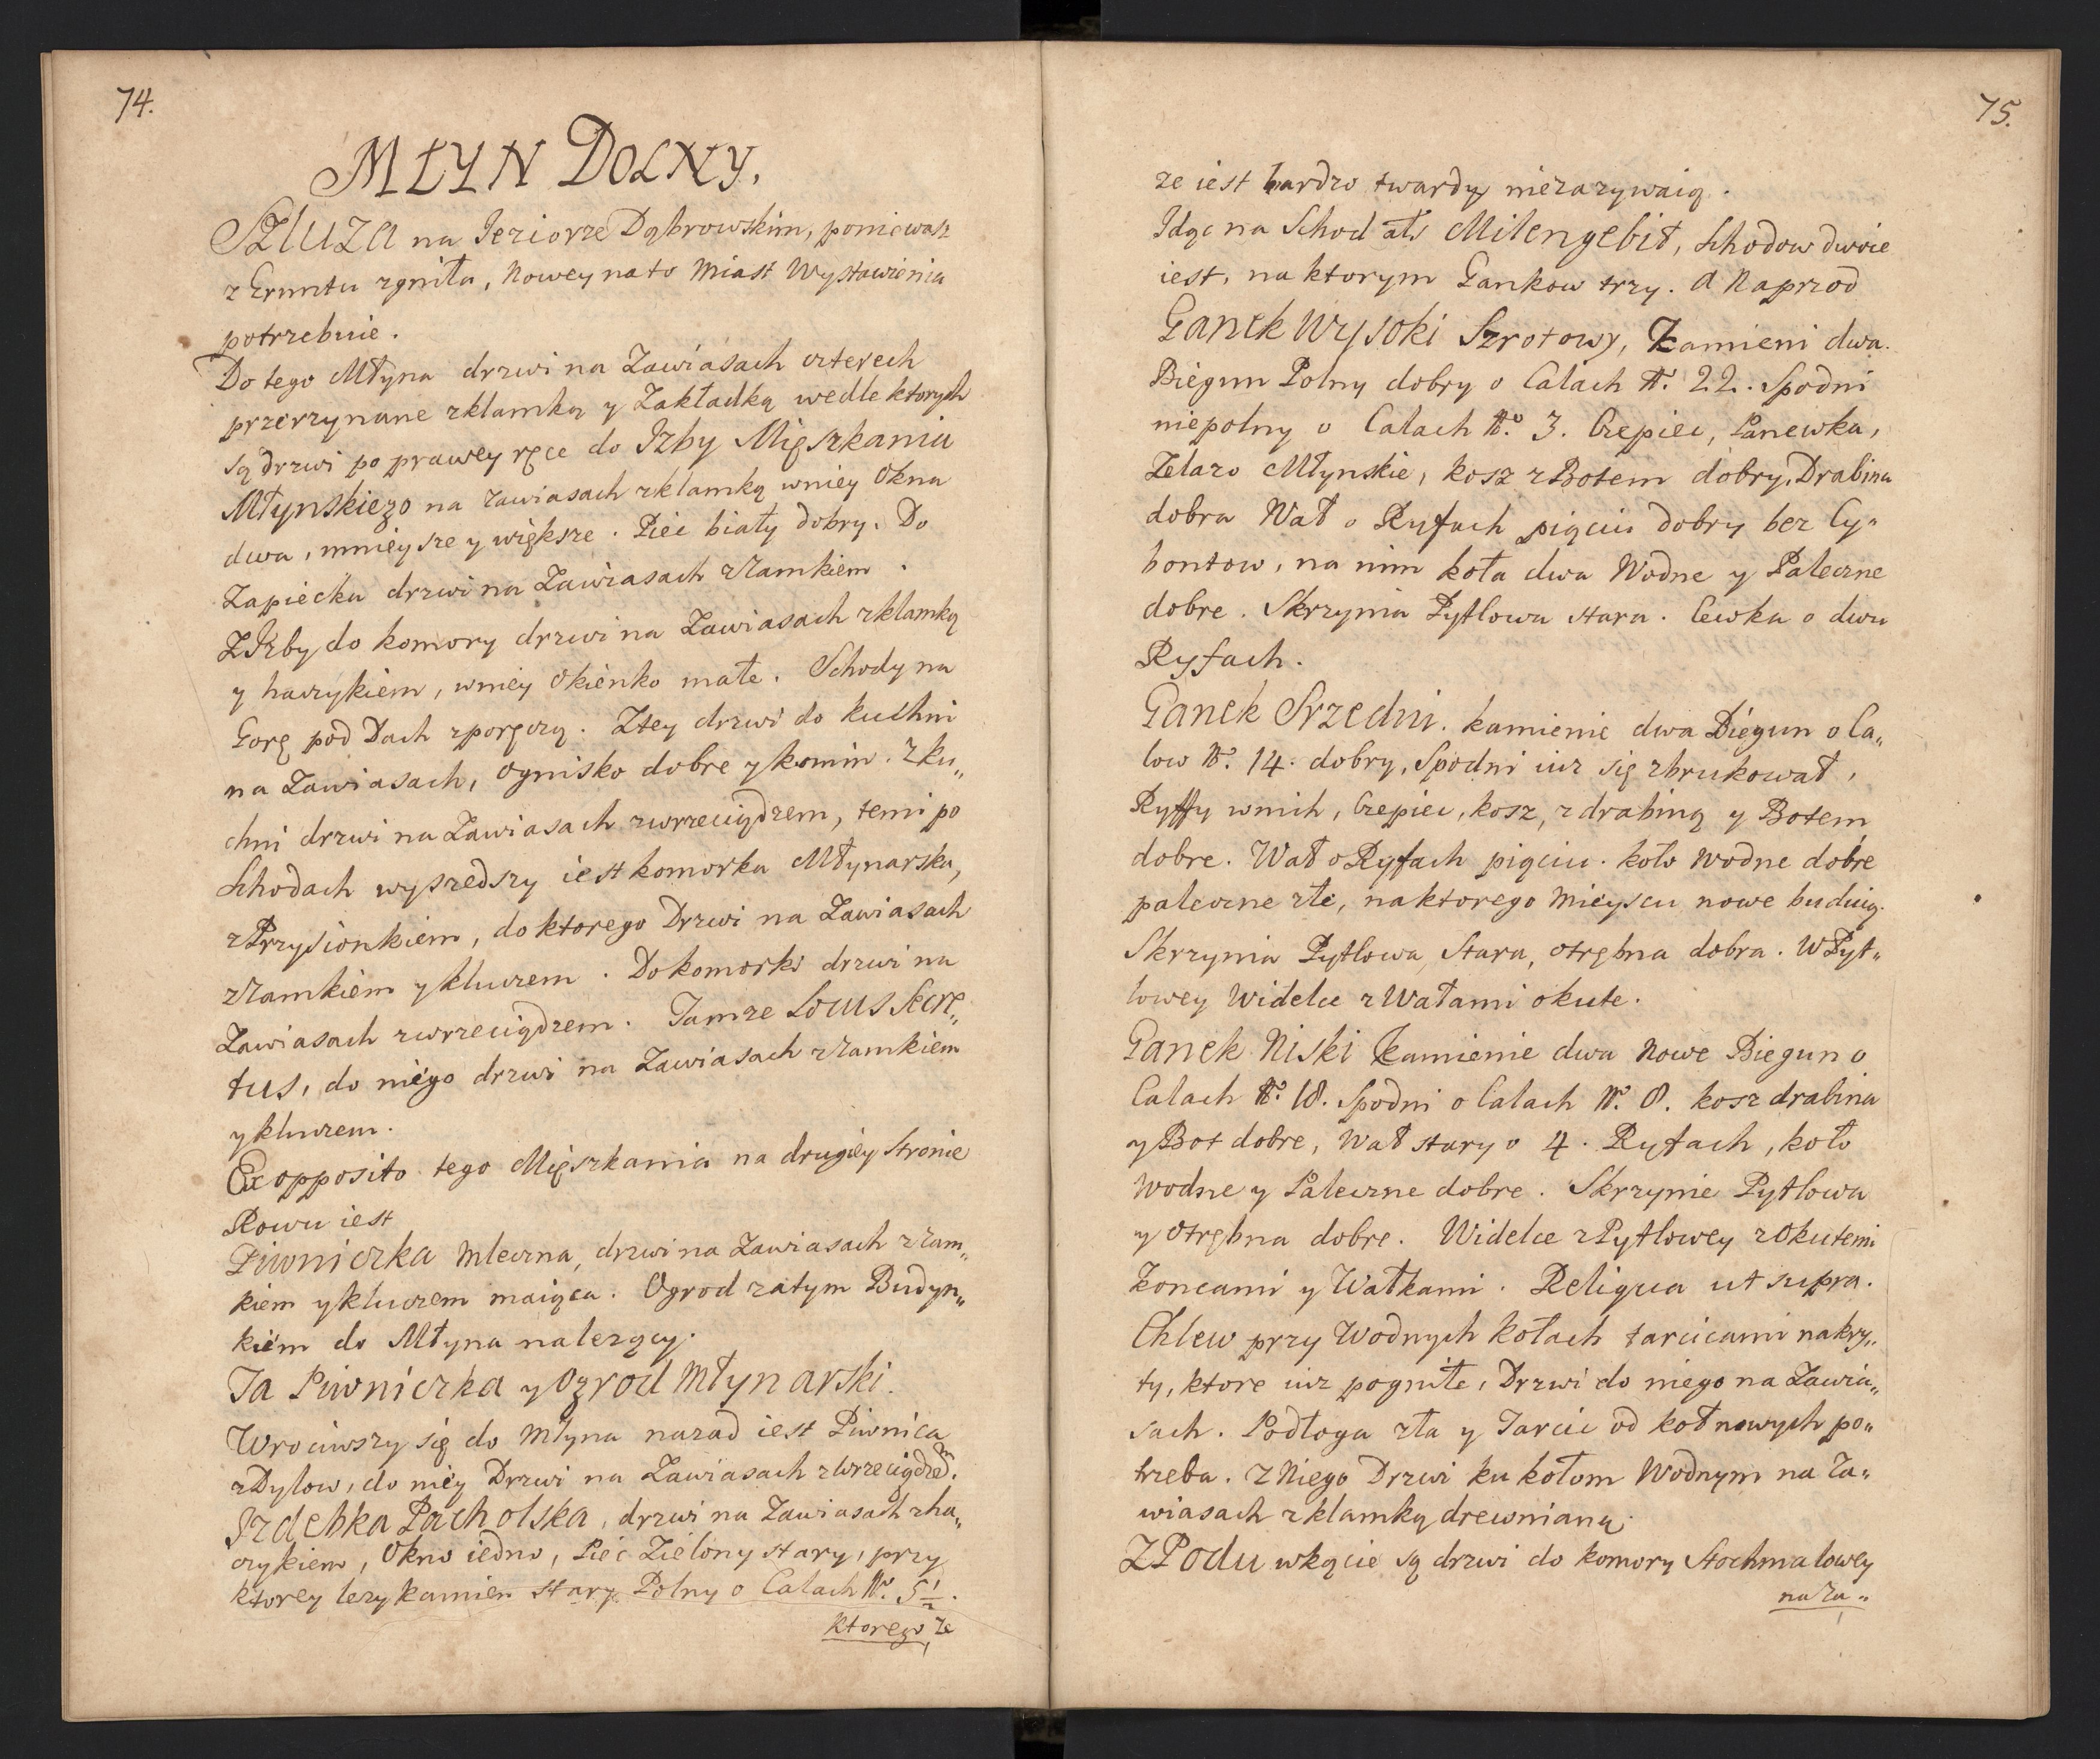 74.
MŁYN DOLNY.
SZLUZA na Jeziorze Dąbrowskim, poniewasz
z Gruntu zgniła, Nowey na to Miast Wystawienia
potrzebuie.
Do tego Młyna drzwi na Zawiasach czterech
przerzynane z klamką y Zakładką wedle ktorych
są drzwi po prawey ręce do Izby Mięszkania
Młynskiego na zawiasach z klamką w niey Okna
dwa, mnieysze y większe. Piec biały dobry. Do
Zapiecka drzwi na Zawiasach z Zamkiem.
Z Izby do komory drzwi na Zawiasach z klamką
y haczykiem, w niey Okienko małe. Schody na
Gorę pod Dach z poręczą. Z tey drzwi do kuchni
na Zawiasach, Ognisko dobre y komin. Z ku„
chni drzwi na Zawiasach z wrzeciądzem, temi po
Schodach wyszedszy iest komorka Młynarska,
z Przysionkiem, do ktorego Drzwi na Zawiasach
z Zamkiem y kluczem. Do komorki drzwi na
Zawiasach z wrzeciądzem. Tamze Locus Secre„
tus, do niego drzwi na Zawiasach z Zamkiem
y kluczem.
Ex opposito tego Mięszkania na drugiey Stronie
Rowu iest
Piwniczka Mleczna, drzwi na Zawiasach z Zam„
kiem y kluczem maiąca. Ogrod za tym Budyn„
kiem do Młyna nalezący.
Ta Piwniczka y Ogrod Młynarski.
Wrociwszy się do Młyna nazad iest Piwnica
z Dylow, do niey Drzwi na Zawiasach z Wrzeciądzem.
Izdebka Pacholska, drzwi na Zawiasach z ha„
czykiem, Okno iedno, Piec Zielony stary, przy
ktorey lezy kamien stary Polny o Calach No. 5 1/2.
ktorego, ze
75.
ze iest bardzo twardy niezazywaią.
Idąc na Schod als Milengebit, Schodow dwoie
iest, na ktorym Gankow trzy. A Naprzod
Ganek Wysoki Szrotowy, Kamieni dwa.
Biegun Polny dobry o Calach No. 22. Spodni
niepolny o Calach No. 3. Czepiec, Panewka,
Zelazo Młynskie, kosz z Botem dobry, Drabina
dobra Wał o Ryfach pięciu dobry bez Cy„
bontow, na nim koła dwa Wodne y Paleczne
dobre. Skrzynia Pytlowa stara. Cewka o dwu
Ryfach.
Ganek Srzedni. kamienie dwa Biegun o Ca„
low No. 14. dobry, Spodni iuz się zbrukował,
Ryffy w nich, Czepiec, kosz, z drabiną y Botem
dobre. Wał o Ryfach pięciu. koło Wodne dobre
paleczne złe, na ktorego Mieyscu nowe buduią.
Skrzynia Pytlowa, Stara, otrębna dobra. W Pyt„
lowey Widelce z Wałami okute.
Ganek Niski Kamienie dwa Nowe Biegun o
Calach No. 18. Spodni o Calach No. 8. kosz drabina
y Bot dobre, Wał stary o 4. Ryfach, koło
Wodne y Paleczne dobre. Skrzynie Pytlowa
y Otrębna dobre. Widelce z Pytlowey z Okutemi
Koncami y Wałkami. Reliqua ut supra.
Chlew przy Wodnych kołach tarcicami nakry„
ty, ktore iuz pogniłe, Drzwi do niego na Zawia„
sach. Podłoga zła y Tarcic od koł nowych po„
trzeba. Z Niego Drzwi ku kołom Wodnym na Za„
wiasach z klamką drewnianą.
Z Podu w kącie są drzwi do komory Stochmalowey
na Za„